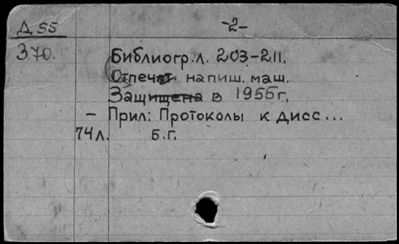 Д 55 -2-
370. Библиогр. л. 203-211.
Отпечат напиш. маш.
Защищена в 1955 г.
- Прил: Протоколы к дисс...
74 л. б.г.